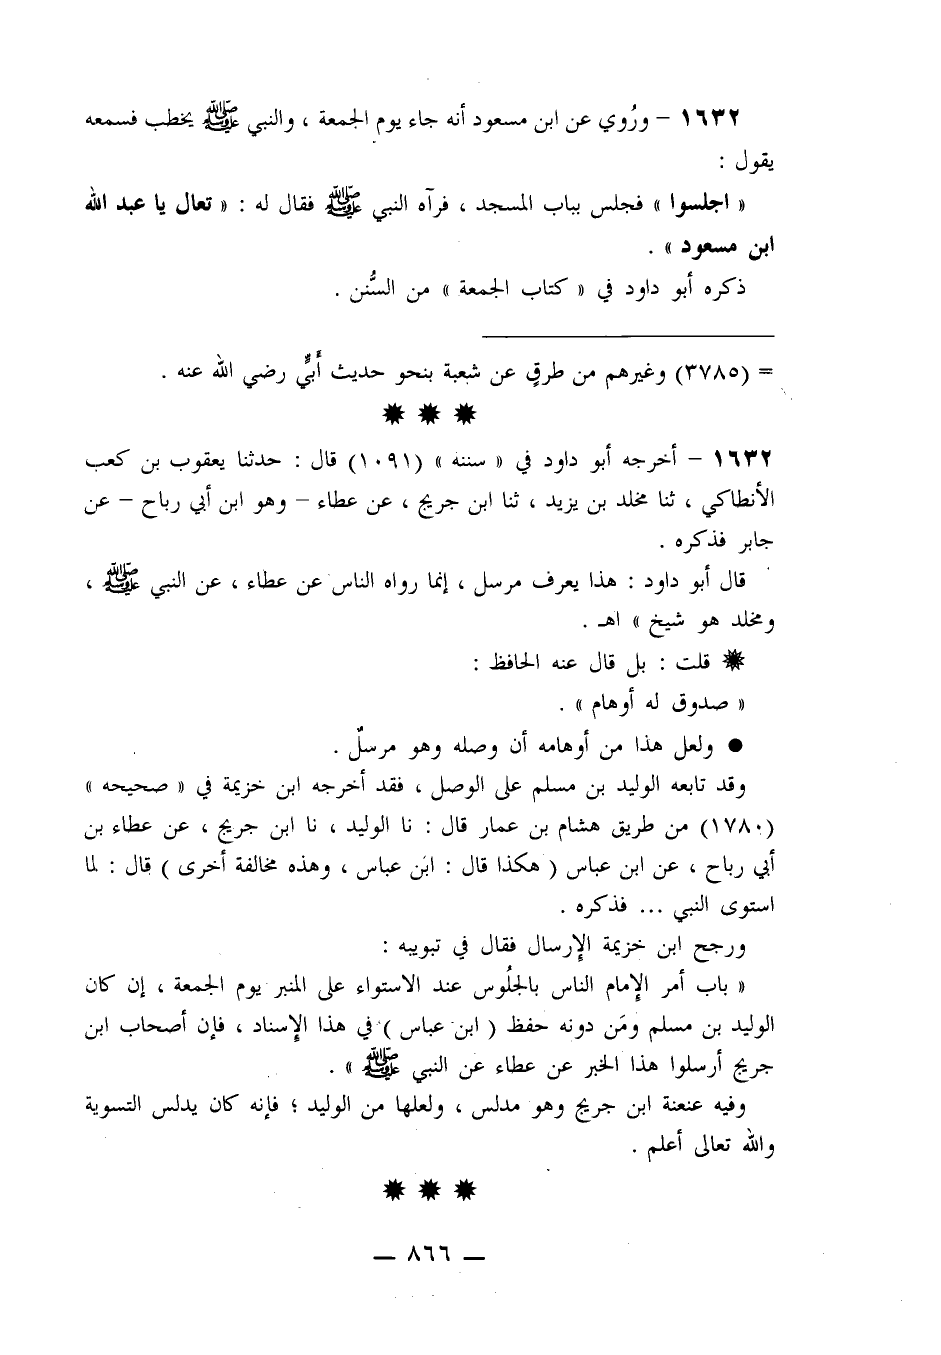 ١٦٣٢ – ورُوي عن ابن مسعود أنه جاء يوم الجمعة ، والنبي ﷺ يخطب فسمعه
يقول :
« اجلسوا » فجلس بباب المسجد ، فرآه النبي ﷺ فقال له : « تعال يا عبد الله
ابن مسعود » .
ذكره أبو داود في « كتاب الجمعة » من السُّنن .
= (٣٧٨٥) وغيرهم من طرقٍ عن شعبة بنحو حديث أُبيٍّ رضي الله عنه .
١٦٣٢ – أخرجه أبو داود في « سننه » (١٠٩١) قال : حدثنا يعقوب بن كعب
الأنطاكي ، ثنا مخلد بن يزيد ، ثنا ابن جريج ، عن عطاء – وهو ابن أبي رباح – عن
جابر فذكره .
قال أبو داود : هذا يعرف مرسل ، إنما رواه الناس عن عطاء ، عن النبي ﷺ ،
ومخلد هو شيخ » اهـ .
قلت : بل قال عنه الحافظ :
« صدوق له أوهام » .
● ولعل هذا من أوهامه أن وصله وهو مرسلٌ .
وقد تابعه الوليد بن مسلم على الوصل ، فقد أخرجه ابن خزيمة في « صحيحه »
(١٧٨٠) من طريق هشام بن عمار قال : نا الوليد ، نا ابن جريج ، عن عطاء بن
أبي رباح ، عن ابن عباس ( هكذا قال : ابن عباس ، وهذه مخالفة أخرى ) قال : لما
استوى النبي ... فذكره .
ورجح ابن خزيمة الإرسال فقال في تبويبه :
« باب أمر الإمام الناس بالجلُوس عند الاستواء على المنبر يوم الجمعة ، إن كان
الوليد بن مسلم ومَن دونه حفظ ( ابن عباس ) في هذا الإسناد ، فإن أصحاب ابن
جريج أرسلوا هذا الخبر عن عطاء عن النبي ﷺ » .
وفيه عنعنة ابن جريج وهو مدلس ، ولعلها من الوليد ؛ فإنه كان يدلس التسوية
والله تعالى أعلم .
— ٨٦٦ —